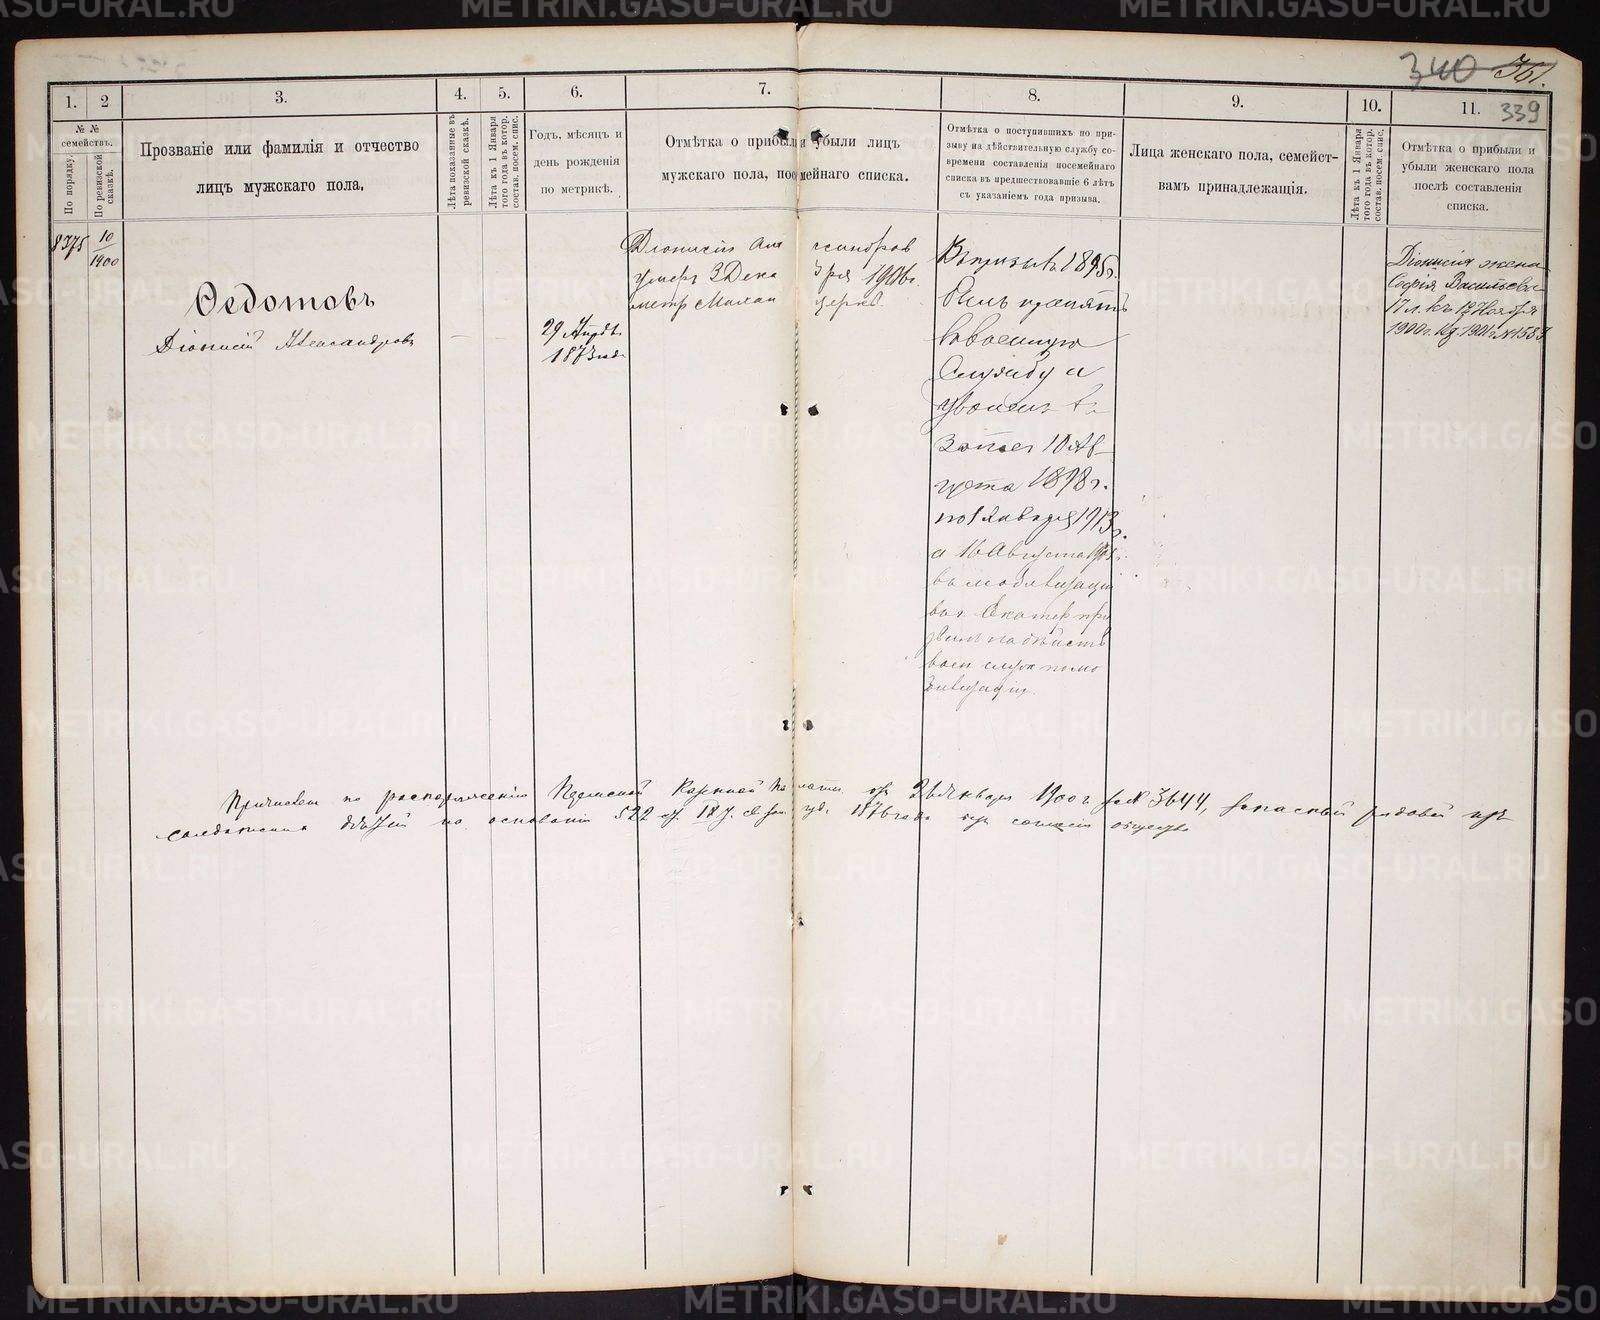 340 361.
339
1.
2
3.
4.
5.
6.
7.
8.
9.
10.
11.
№ №
семействъ.
По порядку.
По ревизской
сказкѣ.
Прозваніе или фамилія и отчество
лицъ мужскаго пола.
Лѣта показанные въ
ревизской сказкѣ.
Лѣта къ 1 Января
того года въ котор.
состав. посем. спис.
Годъ, мѣсяцъ и
день рожденія
по метрикѣ.
Отмѣтка о прибыли и убыли лицъ
мужскаго пола, посемейнаго списка.
Отмѣтка о поступившихъ по при-
зыву на дѣйствительную службу со-
времени составленія посемейнаго
списка въ предшествовавшіе 6 лѣтъ
съ указаніемъ года призыва.
Лица женскаго пола, семейст-
вамъ принадлежащія.
Лѣта къ 1 Января
того года въ котор.
состав. посем. спис.
Отмѣтка о прибыли и
убыли женскаго пола
послѣ составленія
списка.
8375
10
1900
Ѳедотовъ
Діонисій Александровъ
29 Апрѣл.
1873 год.
Дионисій Александровъ
умеръ 3 Декабря 1906 г.
Въ призывъ 1895 г.
былъ принятъ
въ военную
службу и
уволенъ въ
запасъ 10 Ав-
густа 1898 г.
по 1 Января 1913 г.
а 16 Августа
въ мобилизаціи
Діонисія жена
Софія Васильева
17 л. къ 12 Ноября
1900 г.
Причисленъ по распоряженію Пермской Казенной Палаты отъ 21 Января 1900 г. за № 3644, запасный рядовой изъ
солдатскихъ дѣтей на основаніи 522 ст. IX т. св. зак. изд. 1876 года безъ согласія общества
METRIKI.GASO-URAL.RU